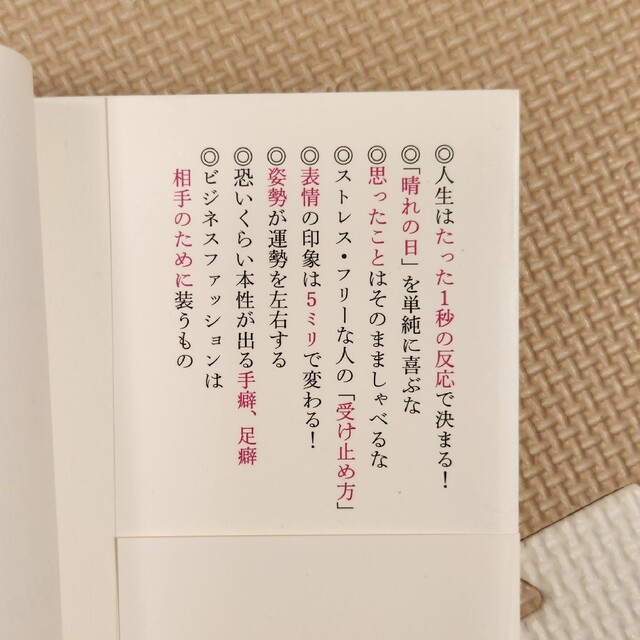 ◎人生はたった1秒の反応で決まる！
◎「晴れの日」を単純に喜ぶな
◎思ったことはそのまましゃべるな
◎ストレス・フリーな人の「受け止め方」
◎表情の印象は5ミリで変わる！
◎姿勢が運勢を左右する
◎恐いくらい本性が出る手癖、足癖
◎ビジネスファッションは
相手のために装うもの